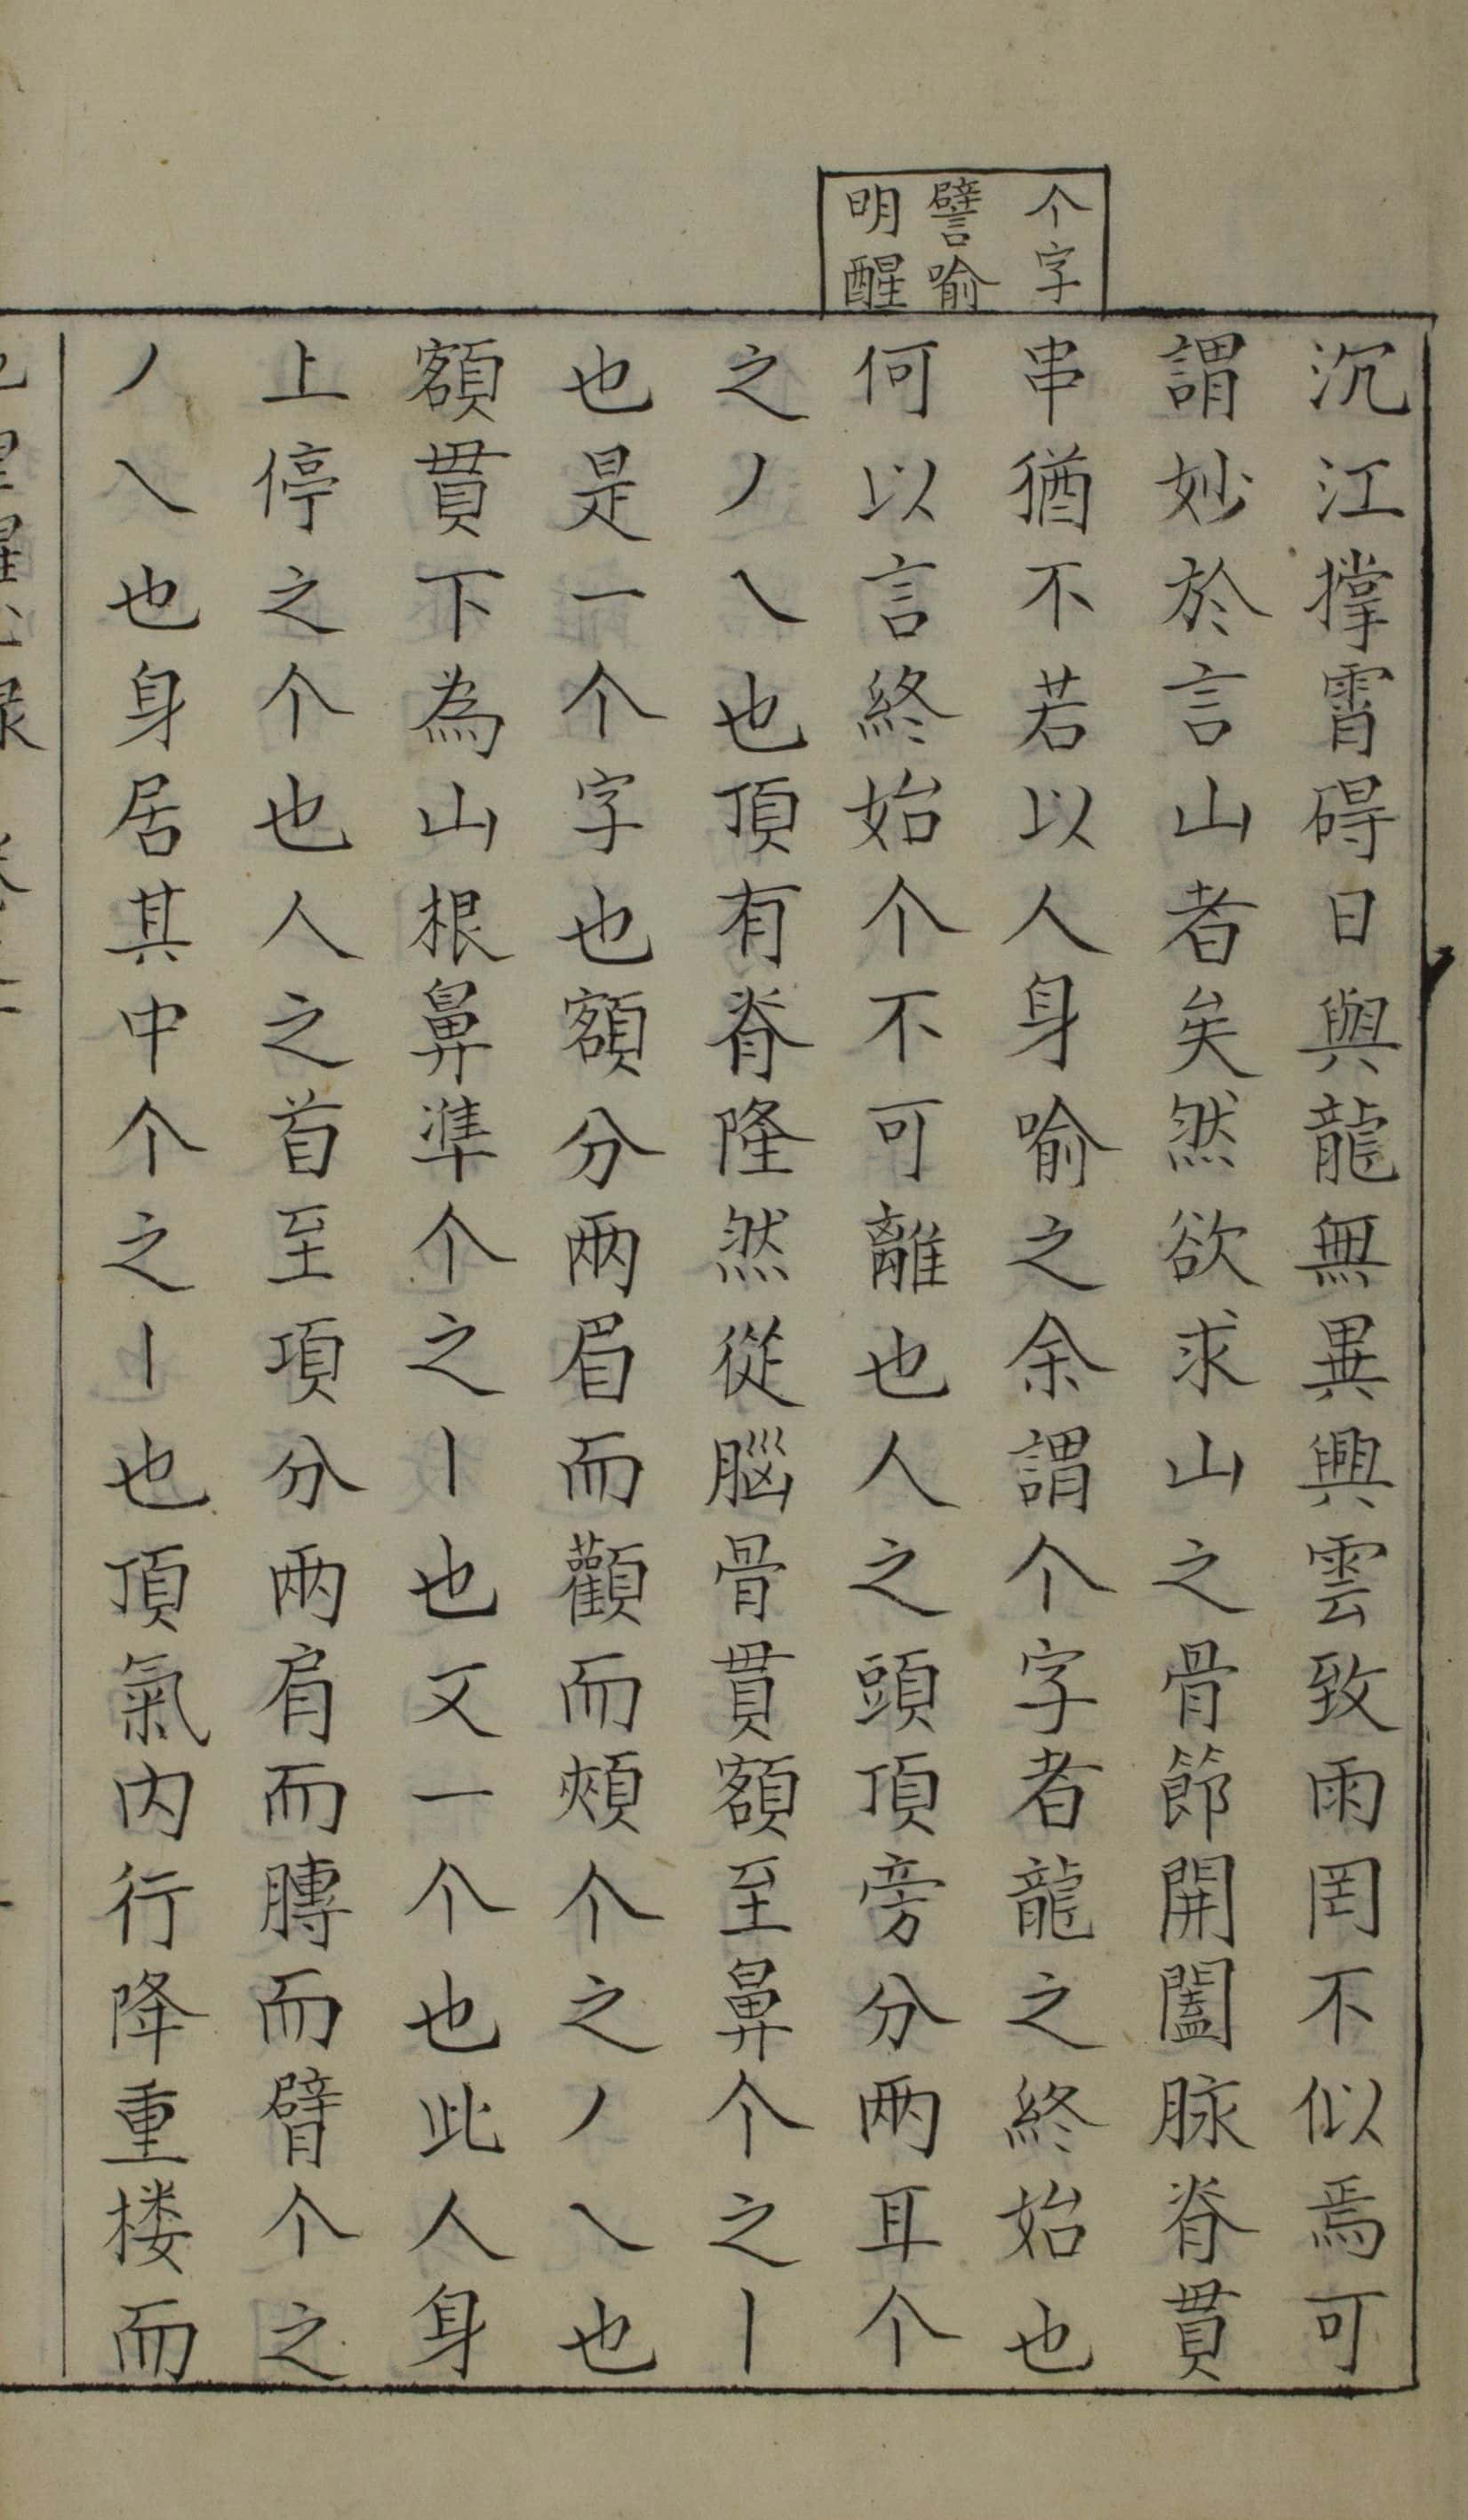 个字
譬喻
明醒
沉江撑霄碍日與龍無異興雲致雨罔不似焉可
謂妙於言山者矣然欲求山之骨節開闔脉脊貫
串猶不若以人身喻之余謂个字者龍之終始也
何以言終始个不可離也人之頭頂旁分兩耳个
之丿乀也頂有脊隆然從腦骨貫額至鼻个之丨
也是一个字也額分兩眉而顴而頰个之丿乀也
額貫下為山根鼻準个之丨也又一个也此人身
上停之个也人之首至項分兩肩而膊而臂个之
丿乀也身居其中个之丨也頂氣內行降重楼而